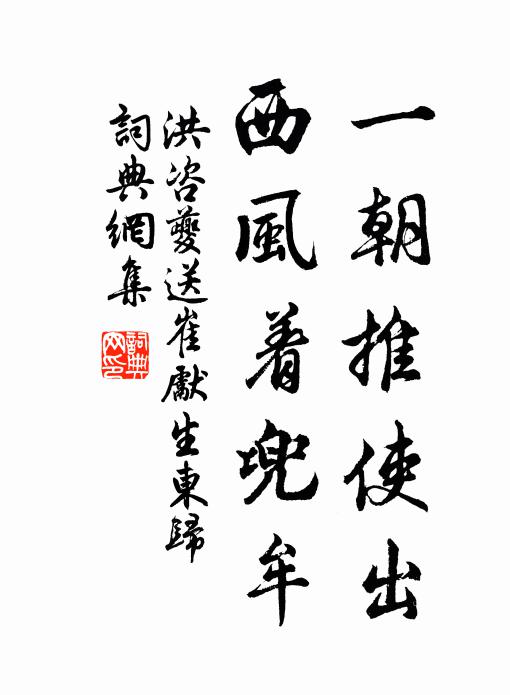 一朝推使出
西風着兜牟
洪咨夔送崔獻生東歸
詞典網集
詞典
网印